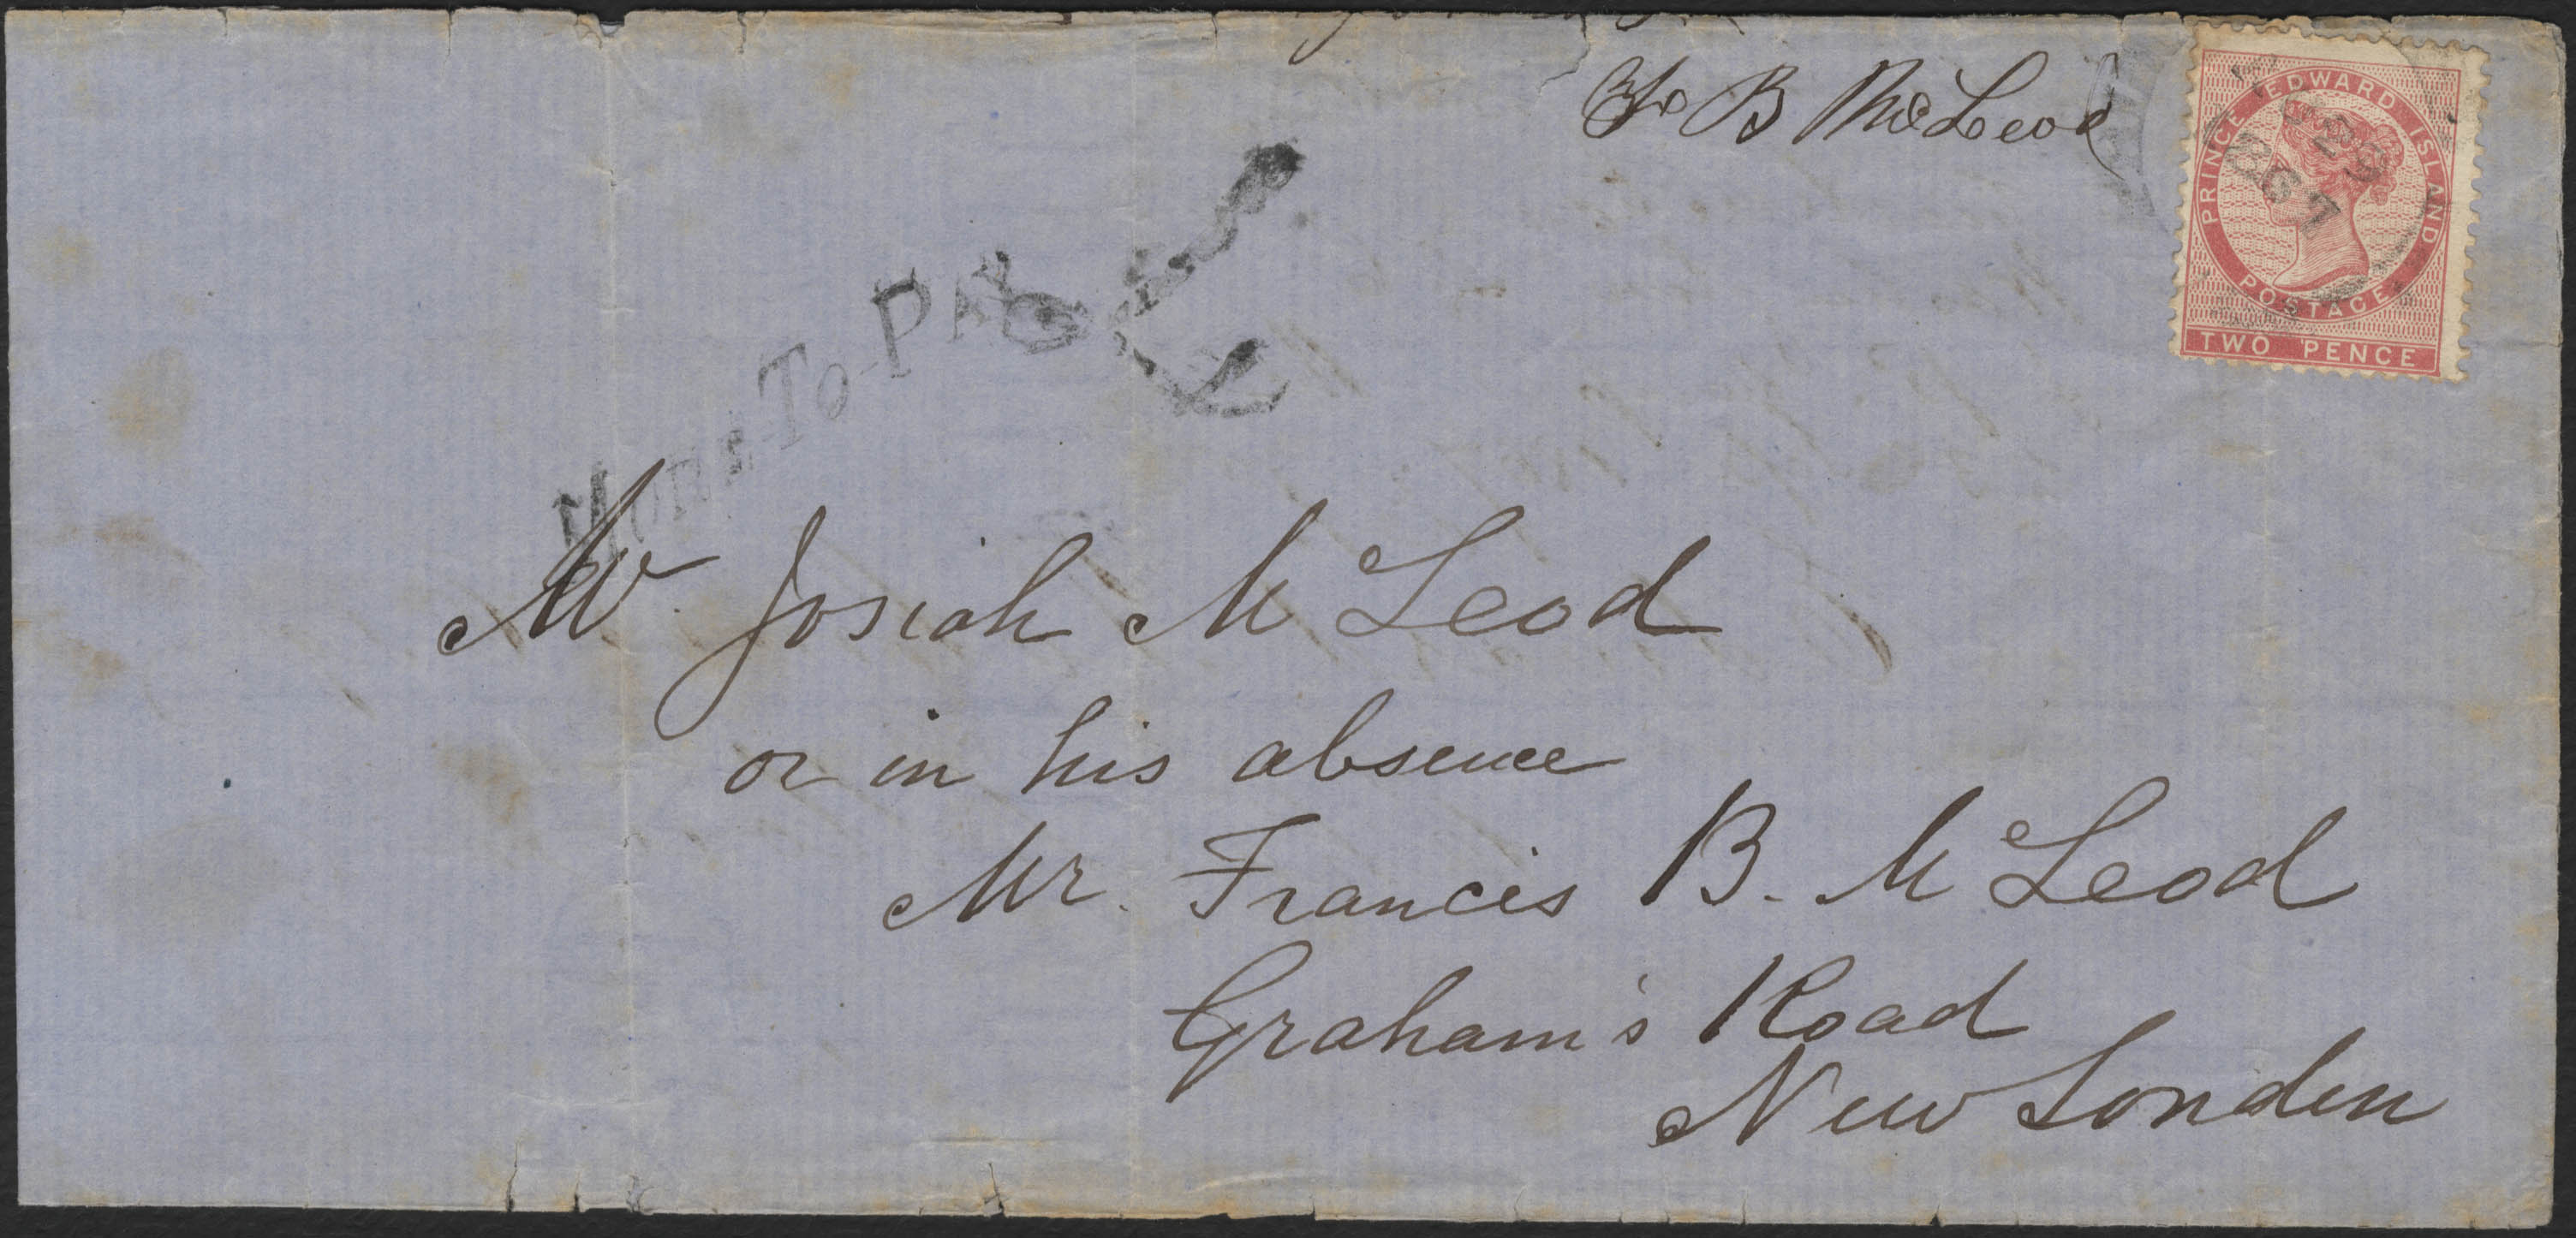 B McLeod
PRINCE EDWARD ISLAND
29
1867
POSTAGE
TWO PENCE
More-To-Pay
Mr Josiah Mc Leod
or in his absence
Mr. Francis B. Mc Leod
Graham's Road
New London